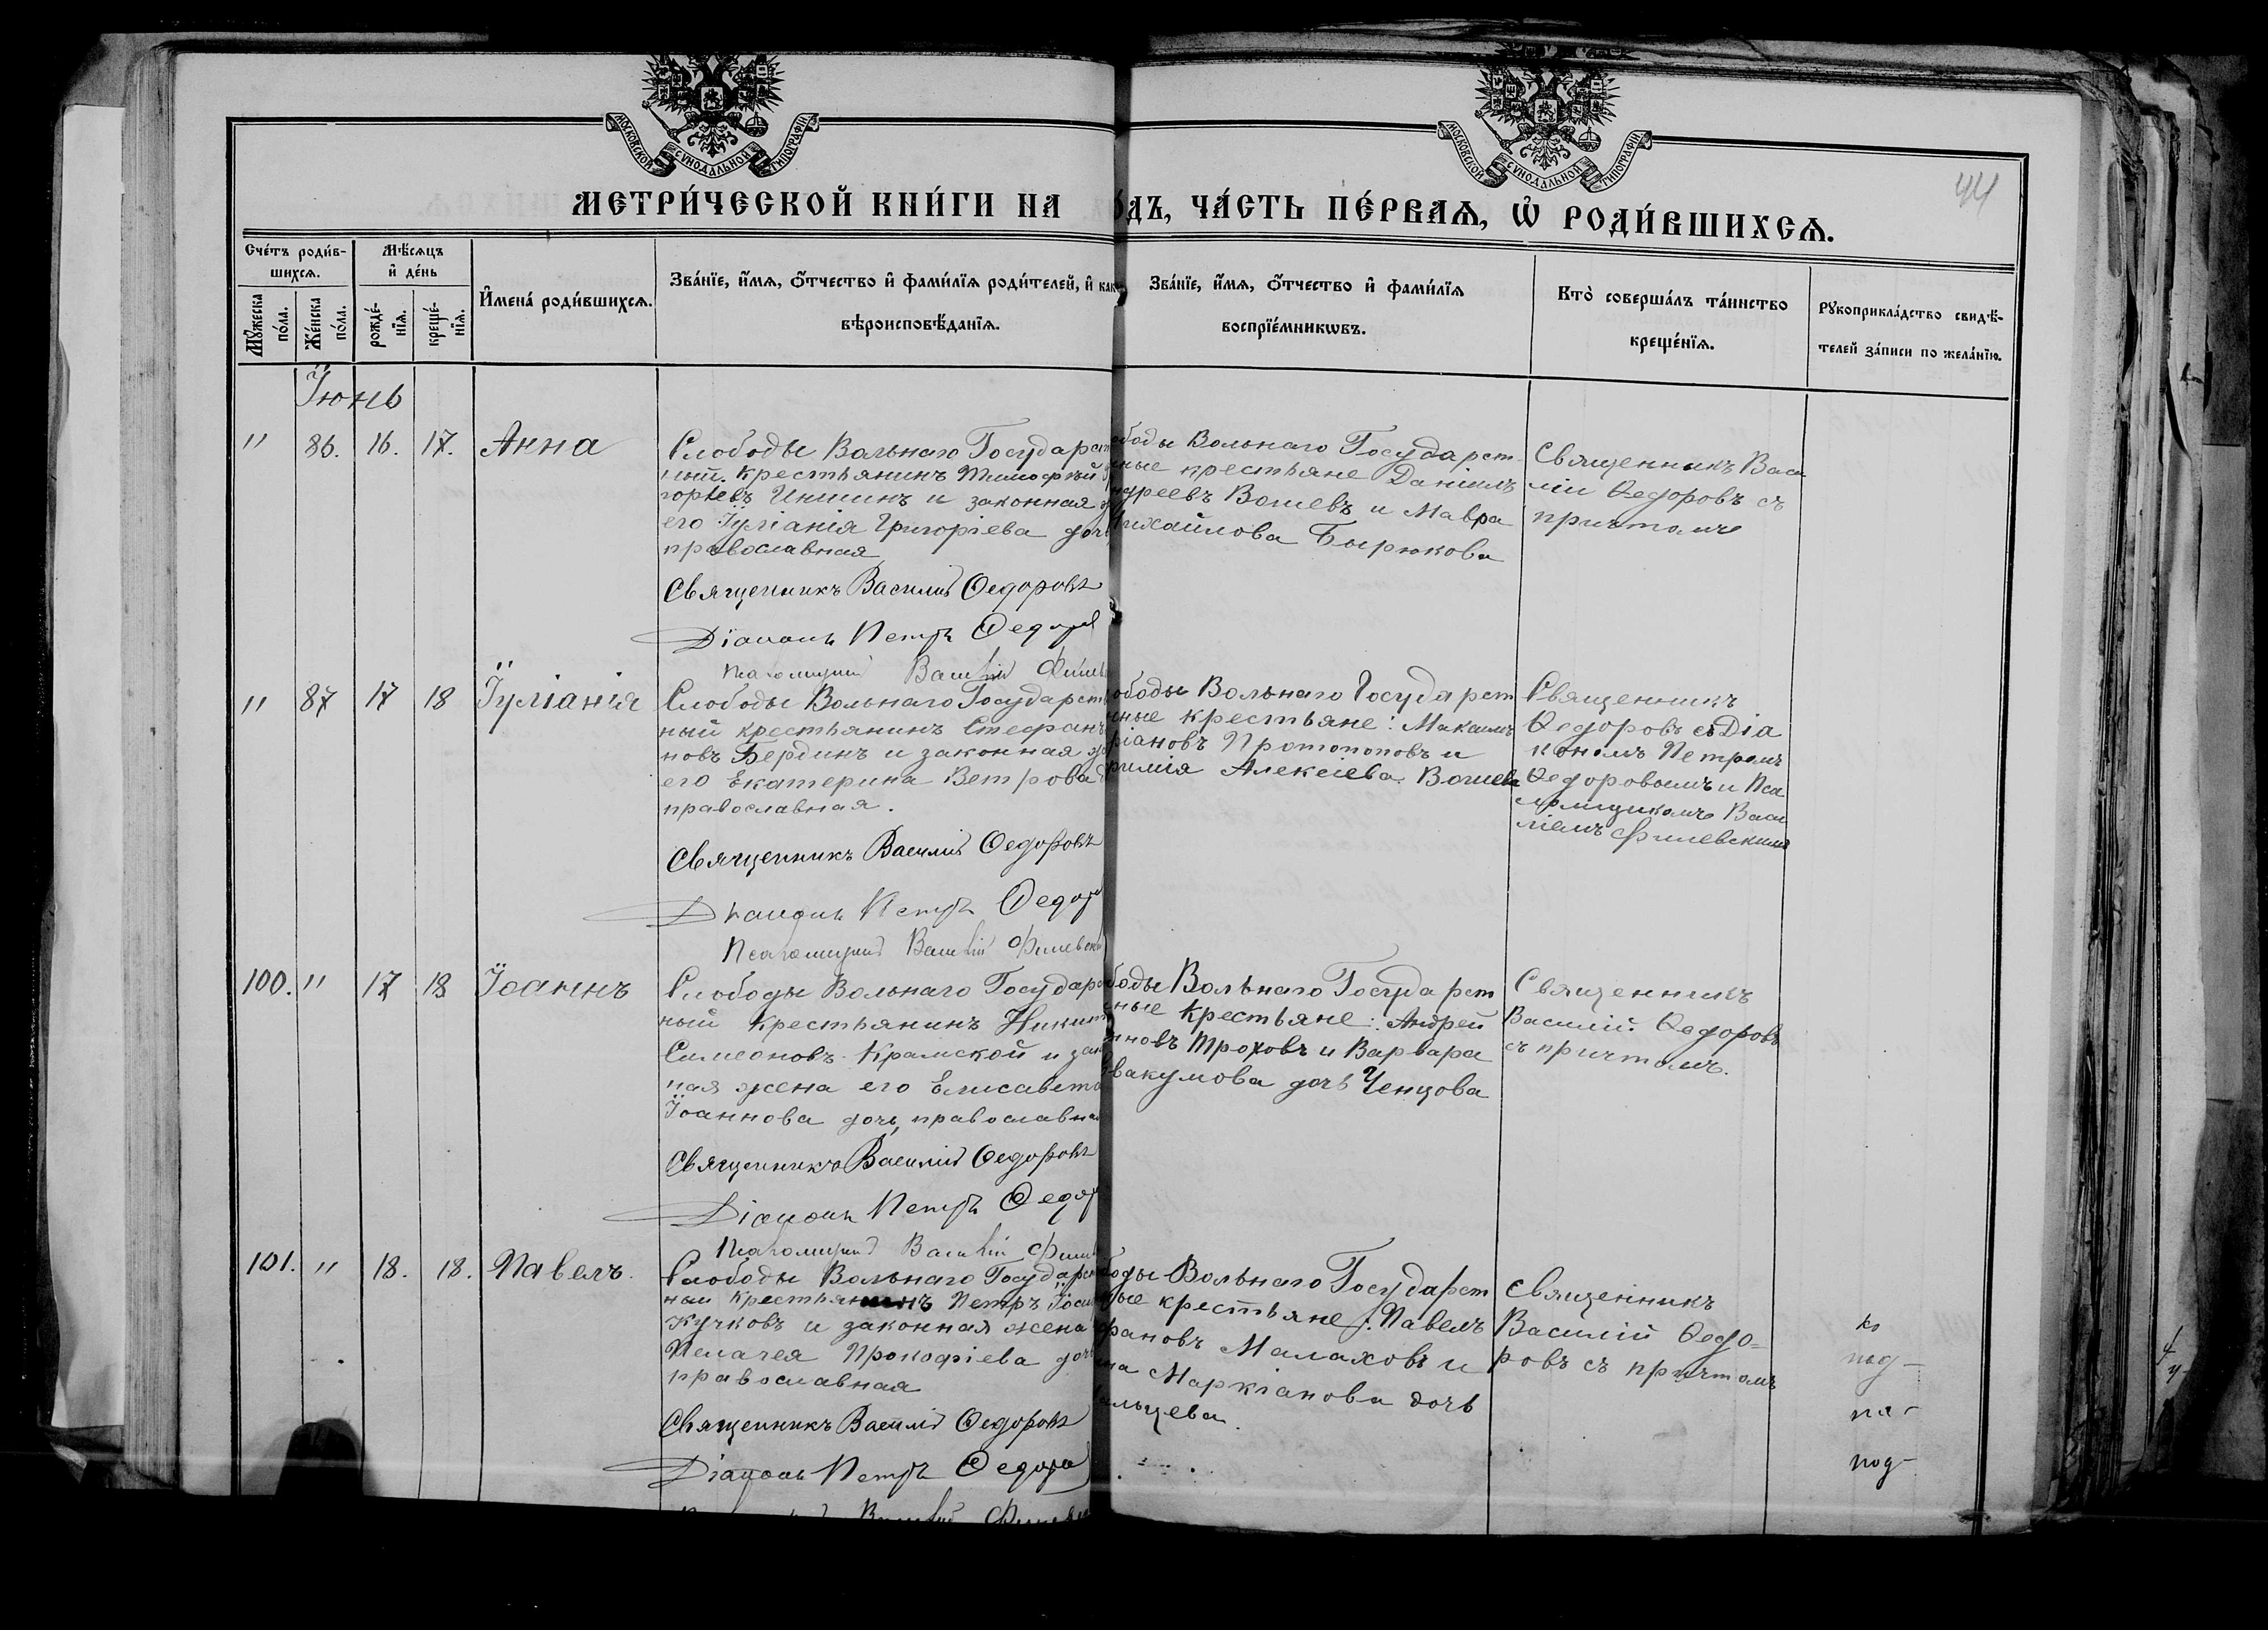 МОСКОВСКОЙ СѴНОДАЛЬНОЙ ТИПОГРАФІИ
МОСКОВСКОЙ СѴНОДАЛЬНОЙ ТИПОГРАФІИ
44
МЕТРИ́ЧЕСКОЙ КНИ́ГИ НА
ОДЪ, ЧА́СТЬ ПЕ́РВАѦ, Ѡ РОДИ́ВШИХСѦ.
Сче́тъ роди́в-
шихсѧ.
Мꙋжеска по́ла.
Же́нска по́ла.
Мѣ́сѧцъ
и҆ де́нь
рожде́-нїѧ.
креще́-нїѧ.
И҆мена̀ роди́вшихсѧ.
Зва́нїе, и҆́мѧ, ѻ҆́тчество и҆ фами́лїѧ роди́телей, и҆ как
вѣроисповѣ́данїѧ.
Зва́нїе, и҆́мѧ, ѻ҆́тчество и҆ фами́лїѧ
воспрїе́мникѡвъ.
Кто̀ соверша́лъ та́инство
креще́нїѧ.
Рꙋкоприкла́дство свидѣ́-
телей за́писи по жела́нїю.
Іюнь
" 86. 16. 17. Анна
Слободы Вольнаго Государст
ный крестьянинъ Тимофѣй Гр
горьевъ Иншинъ и законная ж
его Іуліанія Григоріева доч
православная
Священникъ Василій Ѳедоровъ
Діаконъ Петръ Ѳедоров
Псаломщикъ Василій Филев
ободы Вольнаго Государст-
нные крестьяне Даніилъ
ндреевъ Вошевъ и Мавра
Михайлова Бырюкова
Священникъ Васи
лій Ѳедоровъ съ
причтомъ
" 87 17 18 Іуліанія
Слободы Вольнаго Государст
ный крестьянинъ Стефанъ
новъ Бердинъ и законная ж
его Екатерина Ветрова д
православная.
Священникъ Василій Ѳедоровъ
Діаконъ Петръ Ѳедор
Псаломщикъ Василій Филевск
ободы Вольнаго Государст
нные крестьяне: Максимъ
ріановъ Протопоповъ и
фимія Алексіева Вошева
Священникъ
Ѳедоровъ съ Діа
кономъ Петромъ
Ѳедоровымъ и Пса
ломщикомъ Васи
ліемъ Филевскимъ
100. " 17 18 Іоаннъ
Слободы Вольнаго Государс
ный крестьянинъ Никит
Симеоновъ Крамской и зак
ная жена его Елисавета
Іоаннова дочь, православна
Священникъ Василій Ѳедоровъ
Діаконъ Петръ Ѳедор
Псаломщикъ Василій Филев
боды Вольнаго Государст
нные крестьяне: Андрей
нновъ Троховъ и Варвара
Авакумова дочь Ченцова
Священникъ
Василій Ѳедоровъ
съ причтомъ.
101. " 18. 18. Павелъ.
Слободы Вольнаго Государст
ный крестьянинъ Петръ Іоси
Кучковъ и законная жена
Пелагея Прокофіева доч
православная
Священникъ Василій Ѳедоровъ
Діаконъ Петръ Ѳедоро
Василій Филев
боды Вольнаго Государст
ные крестьяне: Павелъ
фановъ Малаховъ и
на Маркіанова дочь
альцева.
Священникъ
Василій Ѳедо=
ровъ съ причтомъ
ко
под-
на-
под-